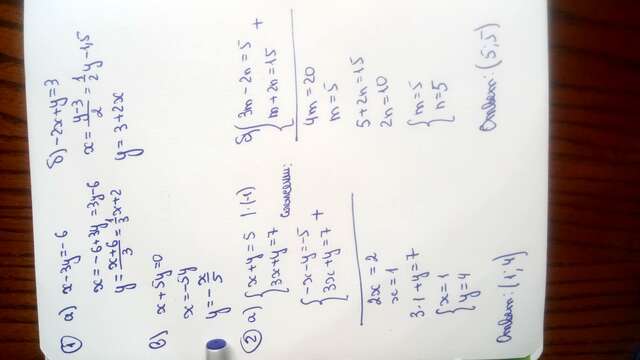 1 а) x-3y=-6
x=-6+3y=3y-6
y=\frac{x+6}{3}=\frac{1}{3}x+2
б) -2x+y=3
x=\frac{y-3}{2}=\frac{1}{2}y-1,5
y=3+2x
в) x+5y=0
x=-5y
y=-\frac{x}{5}
2 а) { x+y=5 |·(-1)
3x+y=7 Сложени:
{ -x-y=-5
3x+y=7 +
2x=2
x=1
3·1+y=7
{ x=1
y=4
Ответ: (1;4)
б) { 3m-2n=5 +
m+2n=15
4m=20
m=5
5+2n=15
2n=10
{ m=5
n=5
Ответ: (5;5)